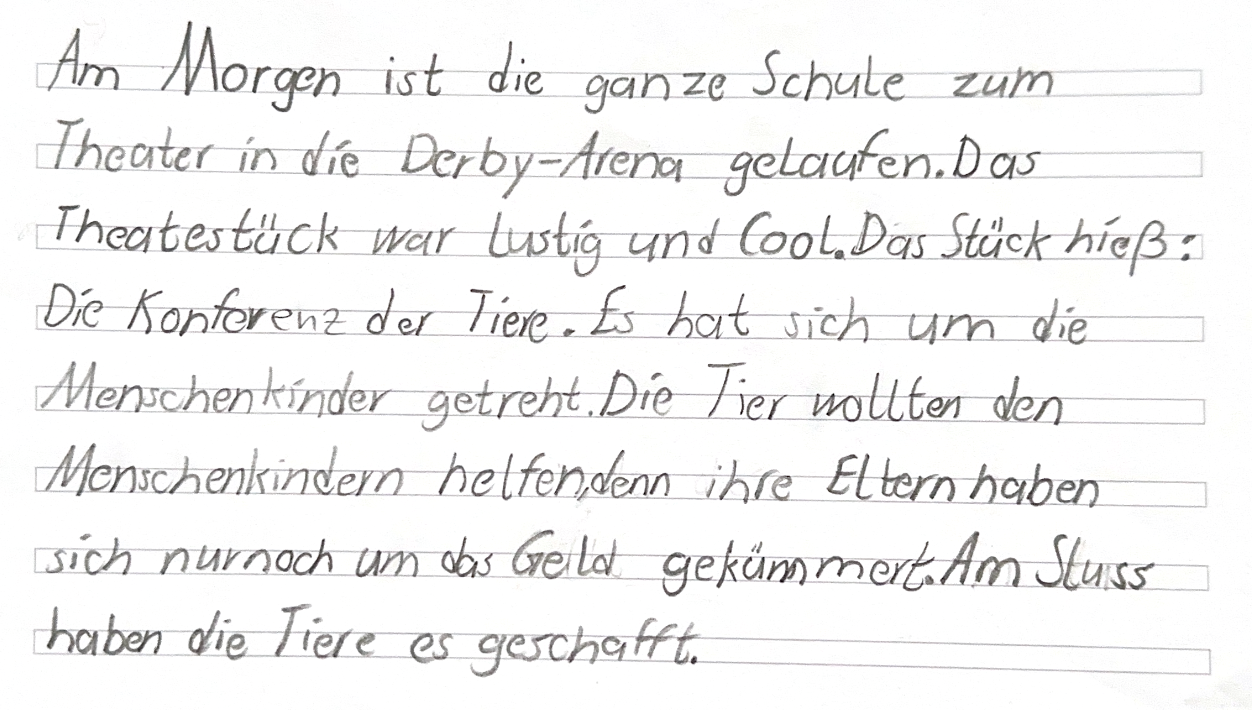 Am Morgen ist die ganze Schule zum
Theater in die Derby-Arena gelaufen. Das
Theatestück war lustig und Cool. Das Stück hieß:
Die Konferenz der Tiere. Es hat sich um die
Menschenkinder getreht. Die Tier wollten den
Menschenkindern helfen, denn ihre Eltern haben
sich nurnoch um das Geld gekümmert. Am Sluss
haben die Tiere es geschafft.